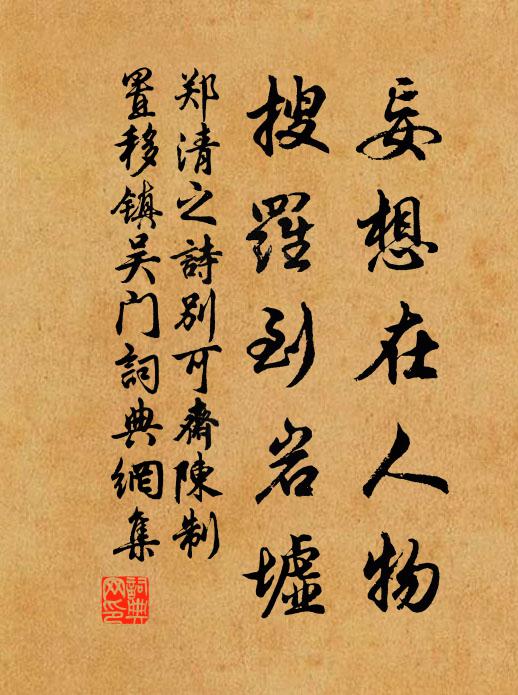 妄想在人物
搜羅到岩墟
郑清之詩别可齋陳制
置移鎮吴门詞典網集
詞典
网印